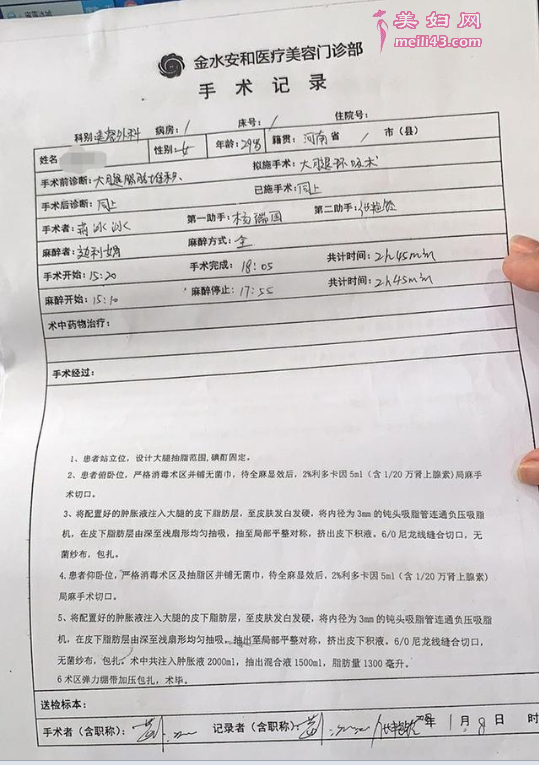 美妇网
meili43.com
金水安和医疗美容门诊部
手术记录
科别:美容外科 病房:/ 床号:/ 住院号:
姓名 性别:女 年龄:29岁 籍贯:河南省 / 市(县)
手术前诊断:大腿脂肪堆积、 拟施手术:大腿环吸术
手术后诊断:同上 已施手术:同上
手术者:蒋冰冰 第一助手:杨瑞国 第二助手:
麻醉者:赵利娟 麻醉方式:全
手术开始:15:20 手术完成:18:05 共计时间:2h45min
麻醉开始:15:10 麻醉停止:17:55 共计时间:2h45min
术中药物治疗:
手术经过:
1、患者站立位,设计大腿抽脂范围,碘酊固定。
2、患者俯卧位,严格消毒术区并铺无菌巾,待全麻显效后,2%利多卡因5ml(含1/20万肾上腺素)局麻手
术切口。
3、将配置好的肿胀液注入大腿的皮下脂肪层,至皮肤发白发硬,将内径为3mm的钝头吸脂管连通负压吸脂
机,在皮下脂肪层由深至浅扇形均匀抽吸,抽至局部平整对称,挤出皮下积液。6/0尼龙线缝合切口,无
菌纱布,包扎。
4.患者仰卧位,严格消毒术区及抽脂区并铺无菌巾,待全麻显效后,2%利多卡因5ml(含1/20万肾上腺素)
局麻手术切口。
5、将配置好的肿胀液注入大腿的皮下脂肪层,至皮肤发白发硬,将内径为3mm的钝头吸脂管连通负压吸脂
机,在皮下脂肪层由深至浅扇形均匀抽吸,抽至局部平整对称,挤出皮下积液。6/0尼龙线缝合切口,
无菌纱布,包扎。术中共注入肿胀液2000ml,抽出混合液1500ml,脂肪量1300毫升。
6术区弹力绷带加压包扎,术毕。
送检标本:
手术者(含职称): 记录者(含职称): 年1月8日 时